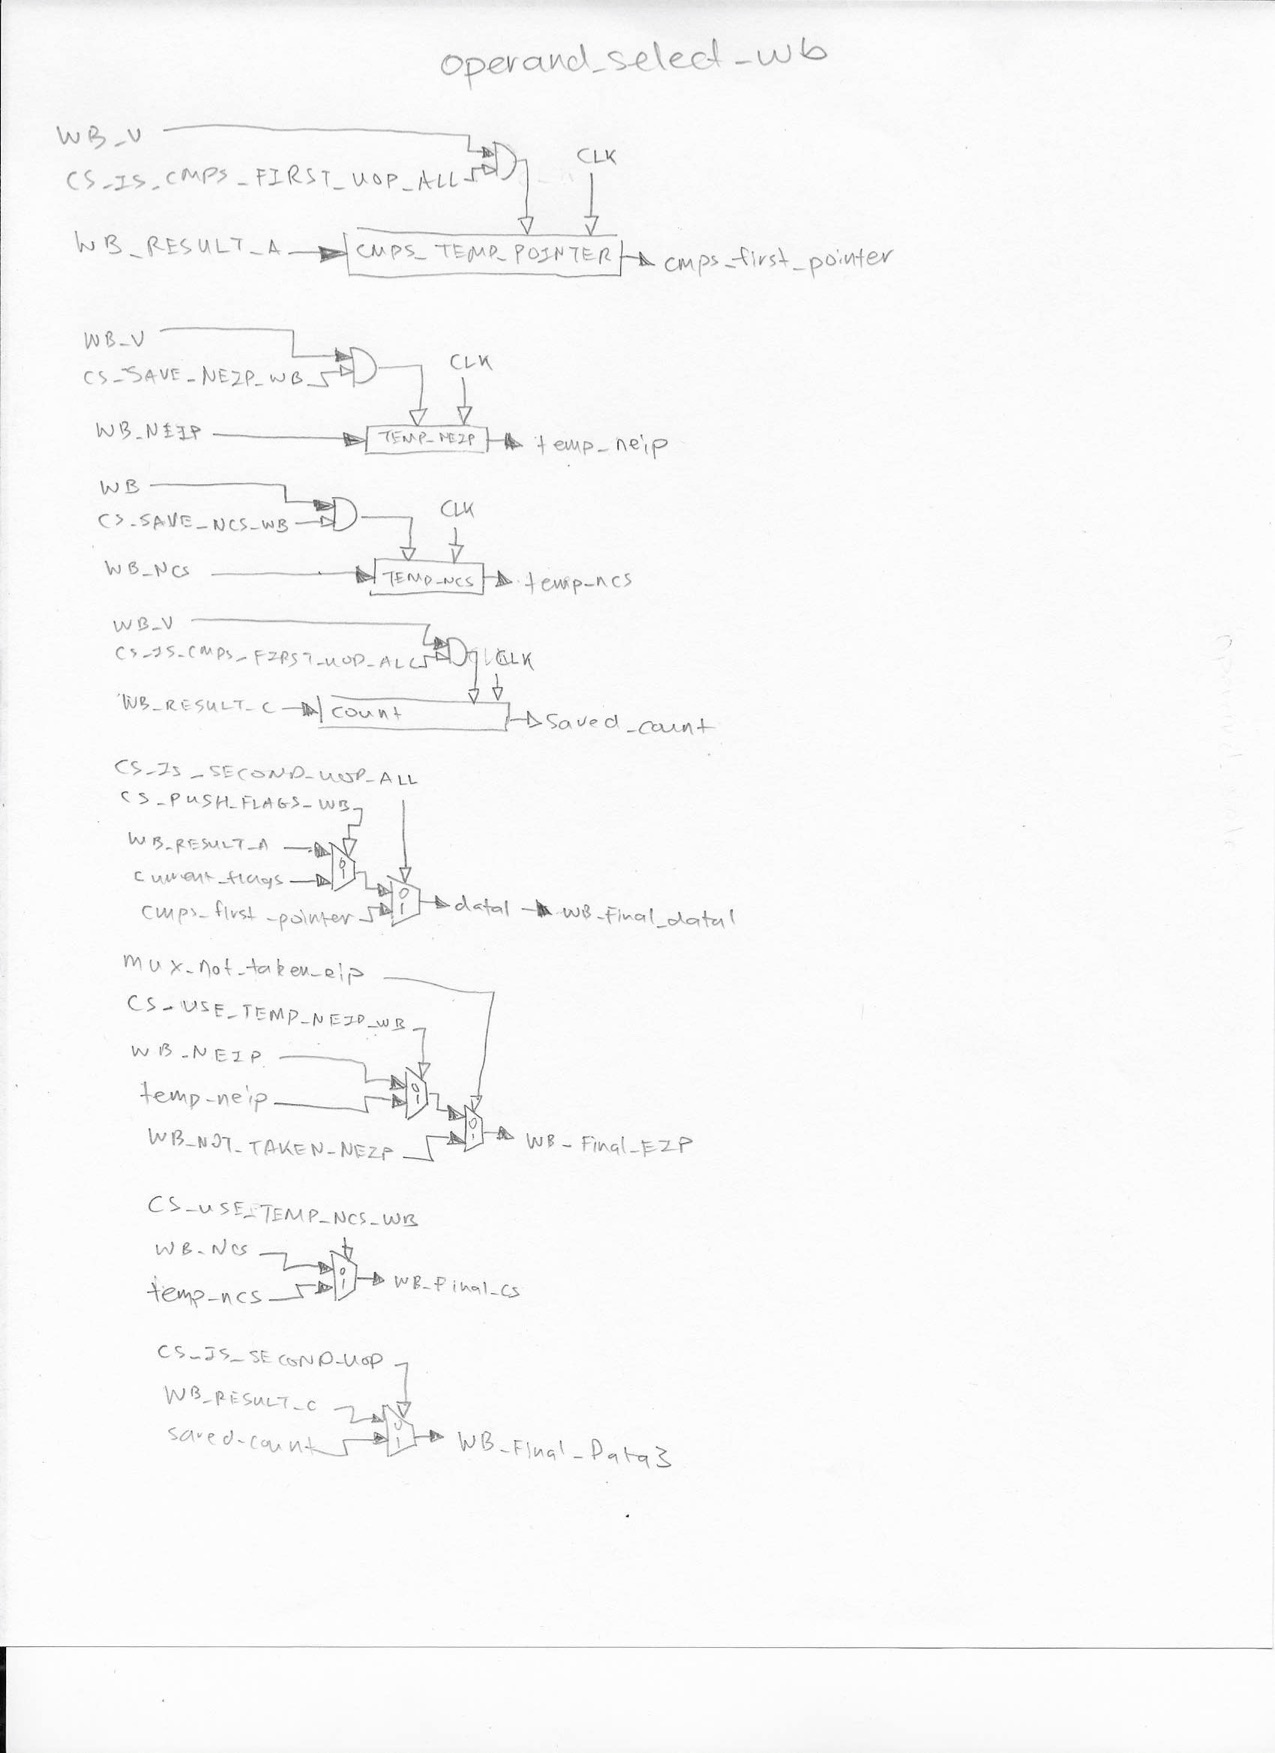 operand_select_wb
WB_V
CLK
CS_IS_CMPS_FIRST_UOP_ALL
WB_RESULT_A
CMPS_TEMP_POINTER
cmps_first_pointer
WB_V
CLK
CS_SAVE_NEIP_WB
WB_NEIP
TEMP_NEIP
temp_neip
WB
CLK
CS_SAVE_NCS_WB
WB_NCS
TEMP_NCS
temp_ncs
WB_V
CS_IS_CMPS_FIRST_UOP_ALL
CLK
WB_RESULT_C
count
Saved_count
CS_IS_SECOND_UOP_ALL
CS_PUSH_FLAGS_WB
WB_RESULT_A
0
1
current_flags
0
1
cmps_first_pointer
data1
WB_Final_data1
mux_not_taken_eip
CS_USE_TEMP_NEIP_WB
WB_NEIP
0
1
temp_neip
0
1
WB_NOT_TAKEN_NEIP
WB_Final_EIP
CS_USE_TEMP_NCS_WB
WB_NCS
0
1
temp_ncs
WB_Final_CS
CS_IS_SECOND_UOP
WB_RESULT_C
0
1
saved_count
WB_Final_Data3